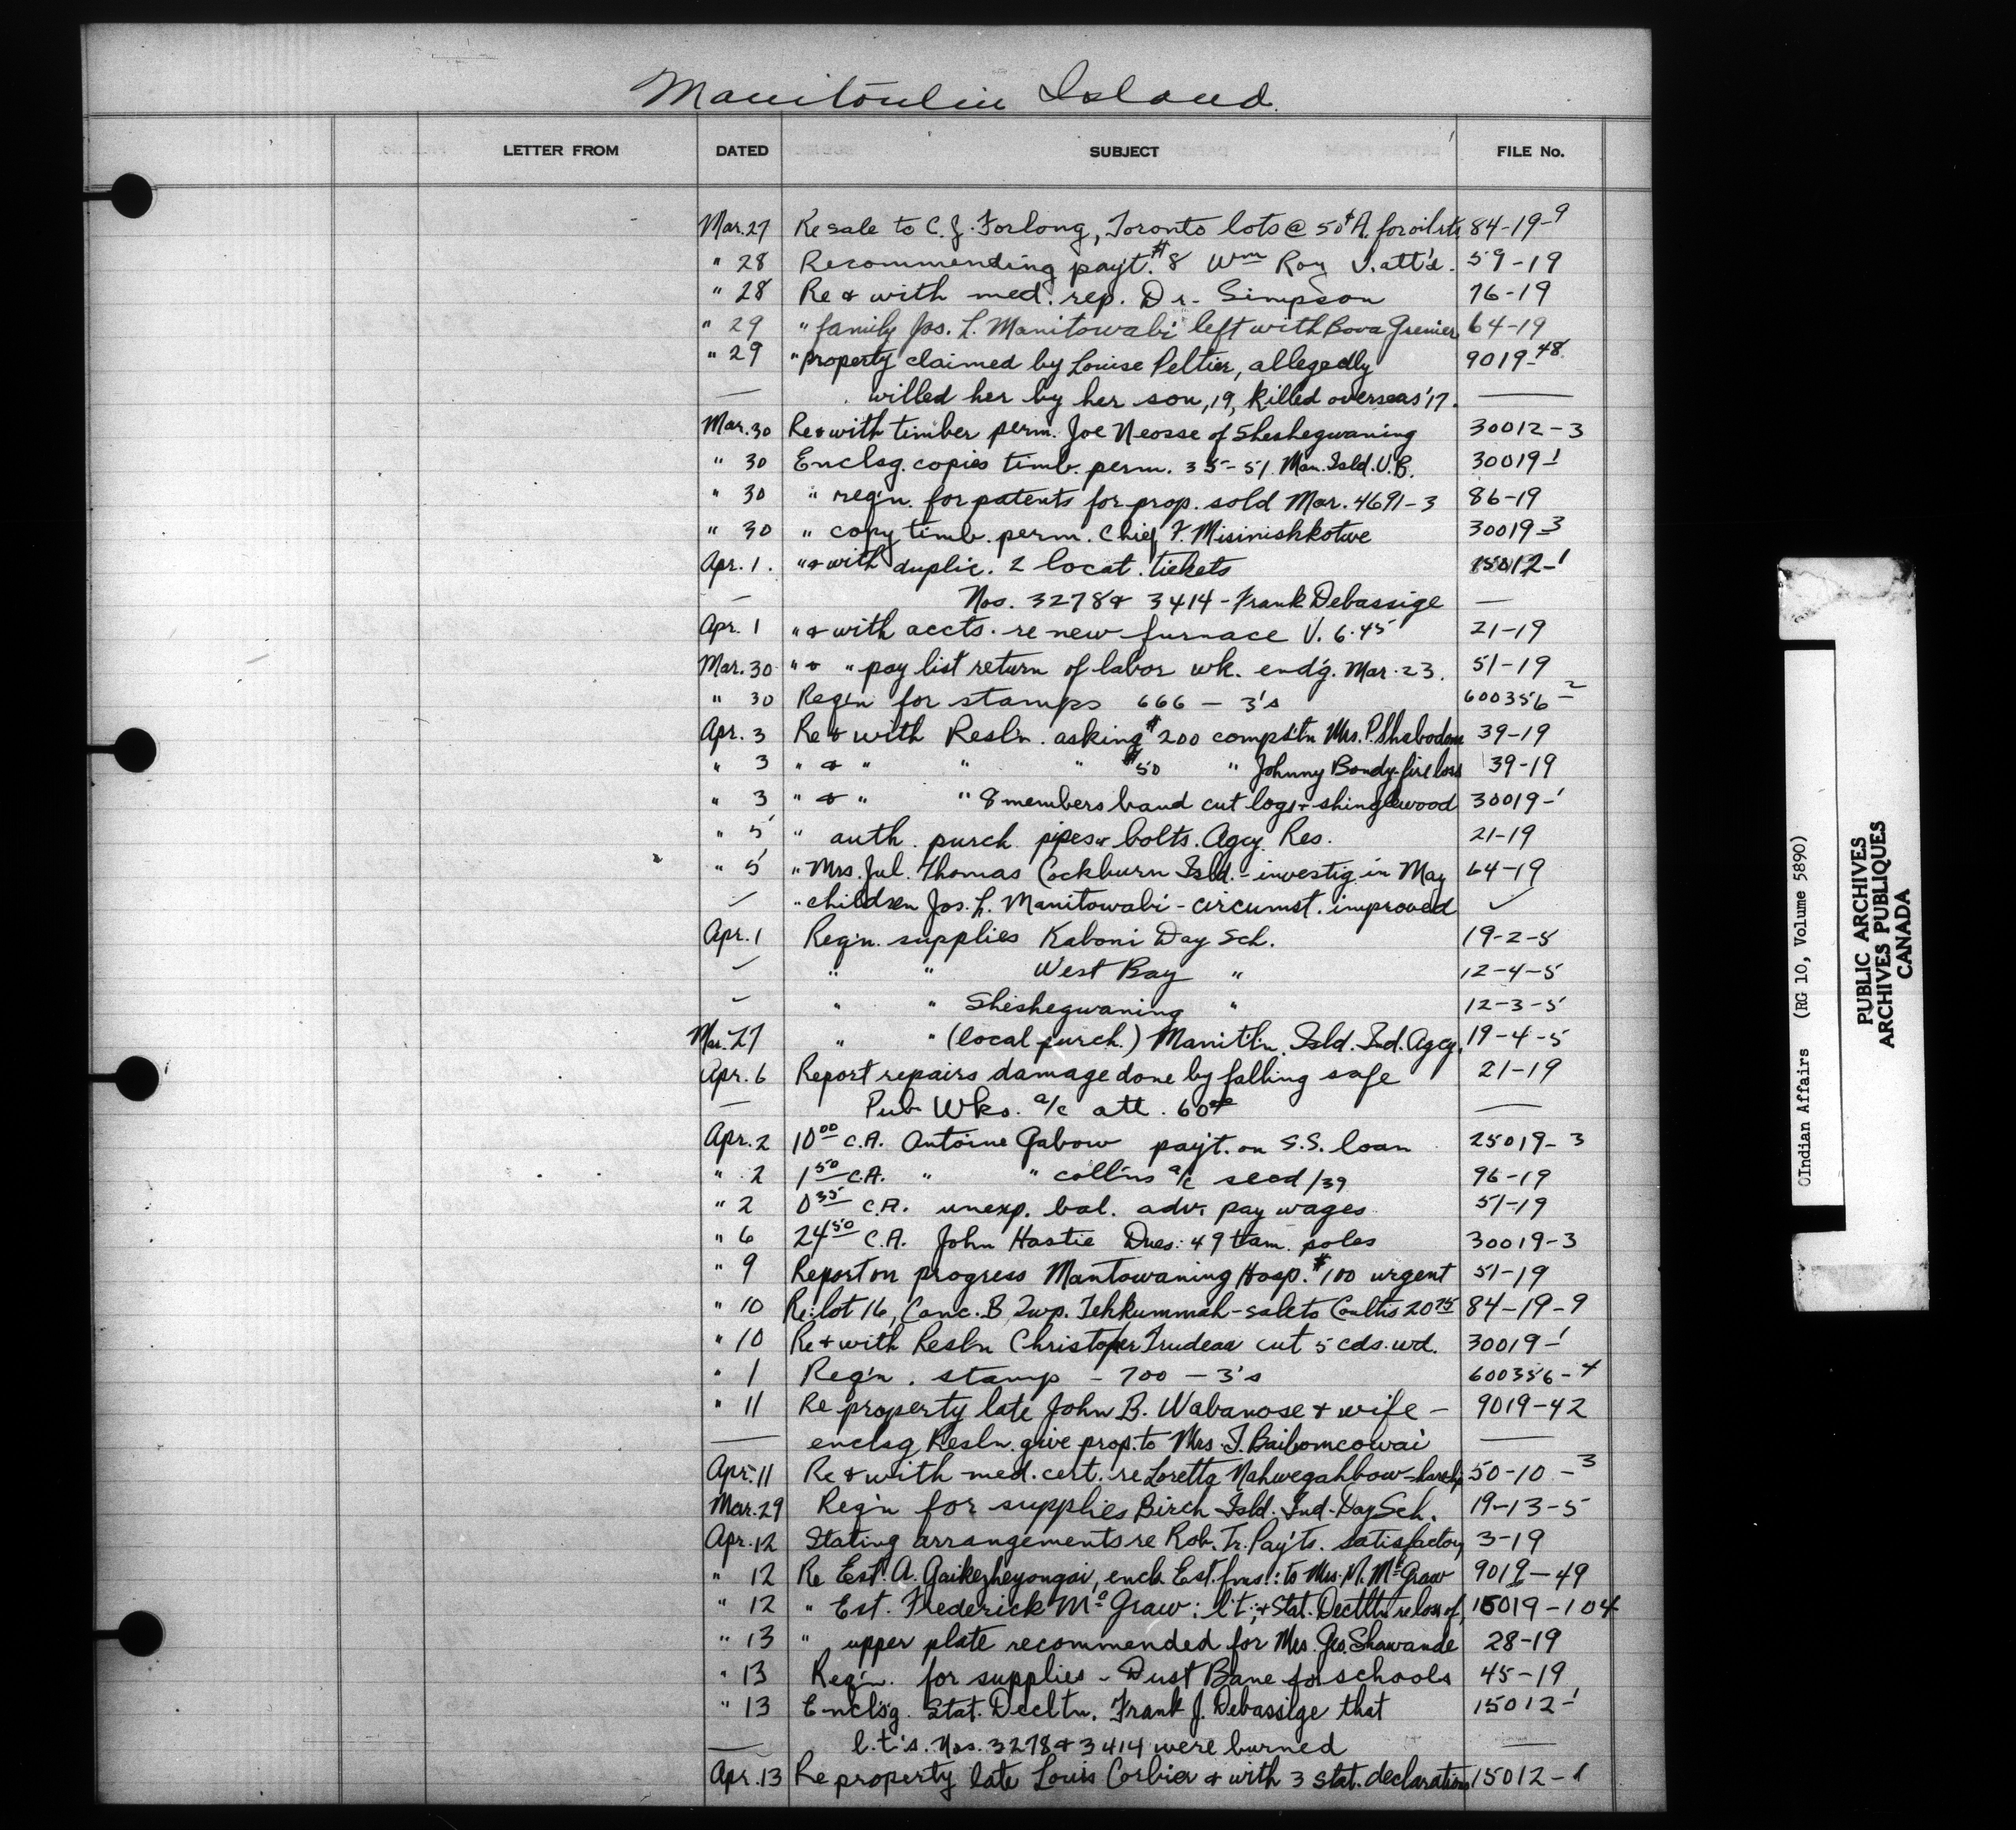 Manitoulin Island.
LETTER FROM DATED SUBJECT FILE No.
Mar. 27 Re sale to C. J. Forlong, Toronto lots @ 50¢ A. for oil rts 84-19-9
" 28 Recommending pay't. $8 Wm Roy V. att'd. 59-19
" 28 Re & with med. rep. Dr. Simpson 76-19
" 29 " family Jos. L. Manitowabi left with Bova Grenier 64-19
" 29 " property claimed by Louise Peltier, allegedly 9019-48
— willed her by her son, 19, killed overseas '17. —
Mar. 30 Re & with timber perm. Joe Neosse of Sheshegwaning 30012-3
" 30 Enclsg. copies timb. perm. 35-51 Man. Isld. U.B. 30019-1
" 30 " req'n. for patents for prop. sold Mar. 4691-3 86-19
" 30 " copy timb. perm. Chief F. Misinishkotwe 30019-3
Apr. 1. " & with duplic. 2 locat. tickets 15012-1
— Nos. 3278 & 3414 - Frank Debassige —
Apr. 1 " & with accts. re new furnace V. 6.45 21-19
Mar. 30 " & " pay list return of labor wk. end'g. Mar. 23. 51-19
" 30 Req'n for stamps 666 - 3's 600356-2
Apr. 3 Re & with Resl'n. asking $200 comps'tn Mrs. P. Shabodom 39-19
" 3 " & " " " $50 " Johnny Bondy-fire loss 39-19
" 3 " & " " 8 members band cut logs + shinglewood 30019-1
" 5 " auth. purch. pipes & bolts. Agcy. Res. 21-19
" 5 " Mrs. Jul. Thomas Cockburn Isld. - investig. in May 64-19
✓ " children Jos. L. Manitowabi - circumst. improved ✓
Apr. 1 Req'n. supplies Kaboni Day Sch. 19-2-5
✓ " " West Bay " 12-4-5
✓ " " Sheshegwaning " 12-3-5
Mar. 27 " " (local purch.) Manit'l'n. Isld. Ind. Agcy. 19-4-5
Apr. 6 Report repairs damage done by falling safe 21-19
— Pub. Wks. a/c att. 60 —
Apr. 2 10 00 C.A. Antoine Gabow pay't. on S.S. loan 25019-3
" 2 1 50 C.A. " " coll'ns a/c seed/39 96-19
" 2 0 35 C.A. unexp. bal. adv. pay wages 51-19
" 6 24 50 C.A. John Hastie Dues: 49 tam. poles 30019-3
" 9 Report on progress Mantowaning Hosp. $100 urgent 51-19
" 10 Re: lot 16, Conc. B Twp. Tehkummah - sale to Coultis 20 75 84-19-9
" 10 Re & with Resl'n Christopher Trudeau cut 5 cds. wd. 30019-1
" 1 Req'n. stamp - 700 - 3's 600356-4
" 11 Re property late John B. Wabanose & wife - 9019-42
— enclsg Resl'n. give prop. to Mrs. J. Baibomcowai —
Apr. 11 Re & with med. cert. re Loretta Nahwegahbow 50-10-3
Mar. 29 Req'n for supplies Birch Isld. Ind. Day Sch. 19-13-5
Apr. 12 Stating arrangements re Rob. Tr. Pay'ts. satisfactory 3-19
" 12 Re Est. A. Gaikezheyongai, encl. Est. fms.: to Mrs. M. McGraw 9019-49
" 12 " Est. Frederick McGraw: l't.; & Stat. Decltn re loss of 15019-104
" 13 " upper plate recommended for Mrs. Geo. Shawande 28-19
" 13 Req'n. for supplies - Dust Bane for schools 45-19
" 13 Enclsg. Stat. Decltn. Frank J. Debassige that 15012-1
— l.t.'s. Nos. 3278 & 3414 were burned —
Apr. 13 Re property late Louis Corbier & with 3 stat. declarations 15012-1
©Indian Affairs (RG 10, Volume 5890)
PUBLIC ARCHIVES
ARCHIVES PUBLIQUES
CANADA